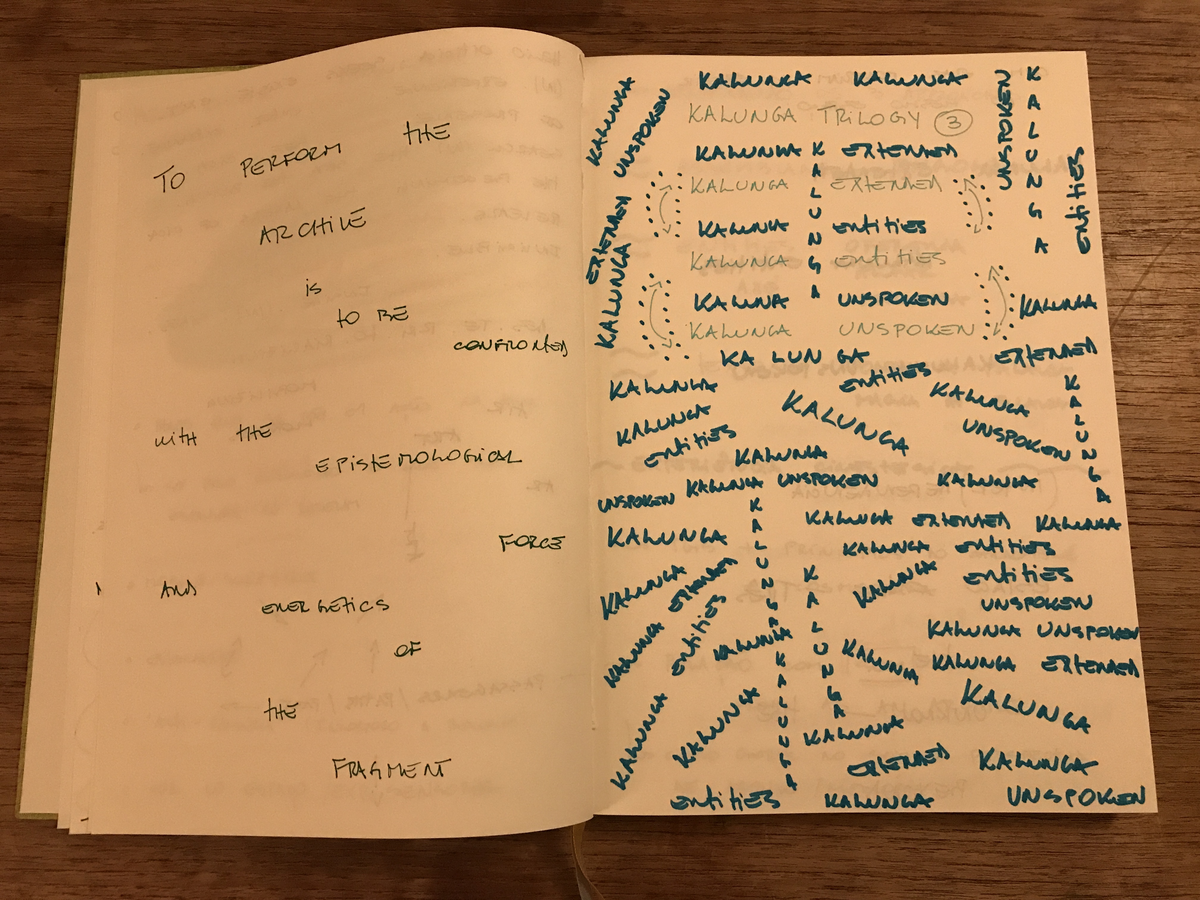 TO PERFORM THE
ARCHIVE
is
to BE
CONFRONTED
with THE
EPISTEMOLOGICAL
FORCE
AND
ENERGETICS
OF
THE
FRAGMENT
KALUNGA KALUNGA
KALUNGA TRILOGY 3
KALUNGA EXTENDED
KALUNGA EXTENDED
KALUNGA entities
KALUNGA entities
KALUNA UNSPOKEN
KALUNGA UNSPOKEN
KALUNGA
UNSPOKEN
EXTENDED
KALUNGA
KALUNGA
UNSPOKEN
KALUNGA
entities
KALUNGA
KA LUN GA
EXTENDED
KALUNGA
entities
KALUNGA
KALUNGA
KALUNGA
KALUNGA
UNSPOKEN
KALUNGA
entities
KALUNGA
UNSPOKEN
KALUNGA
UNSPOKEN
KALUNGA
KALUNGA
KALUNGA
KALUNGA EXTENDED KALUNGA
KALUNGA entities
KALUNGA
EXTENDED
KALUNGA
KALUNGA
entities
UNSPOKEN
KALUNGA
entities
KALUNGA
KALUNGA UNSPOKEN
KALUNGA
KALUNGA
KALUNGA EXTENDED
KALUNGA
KALUNGA
KALUNGA
KALUNGA
KALUNGA
EXTENDED
KALUNGA
entities
KALUNGA
UNSPOKEN